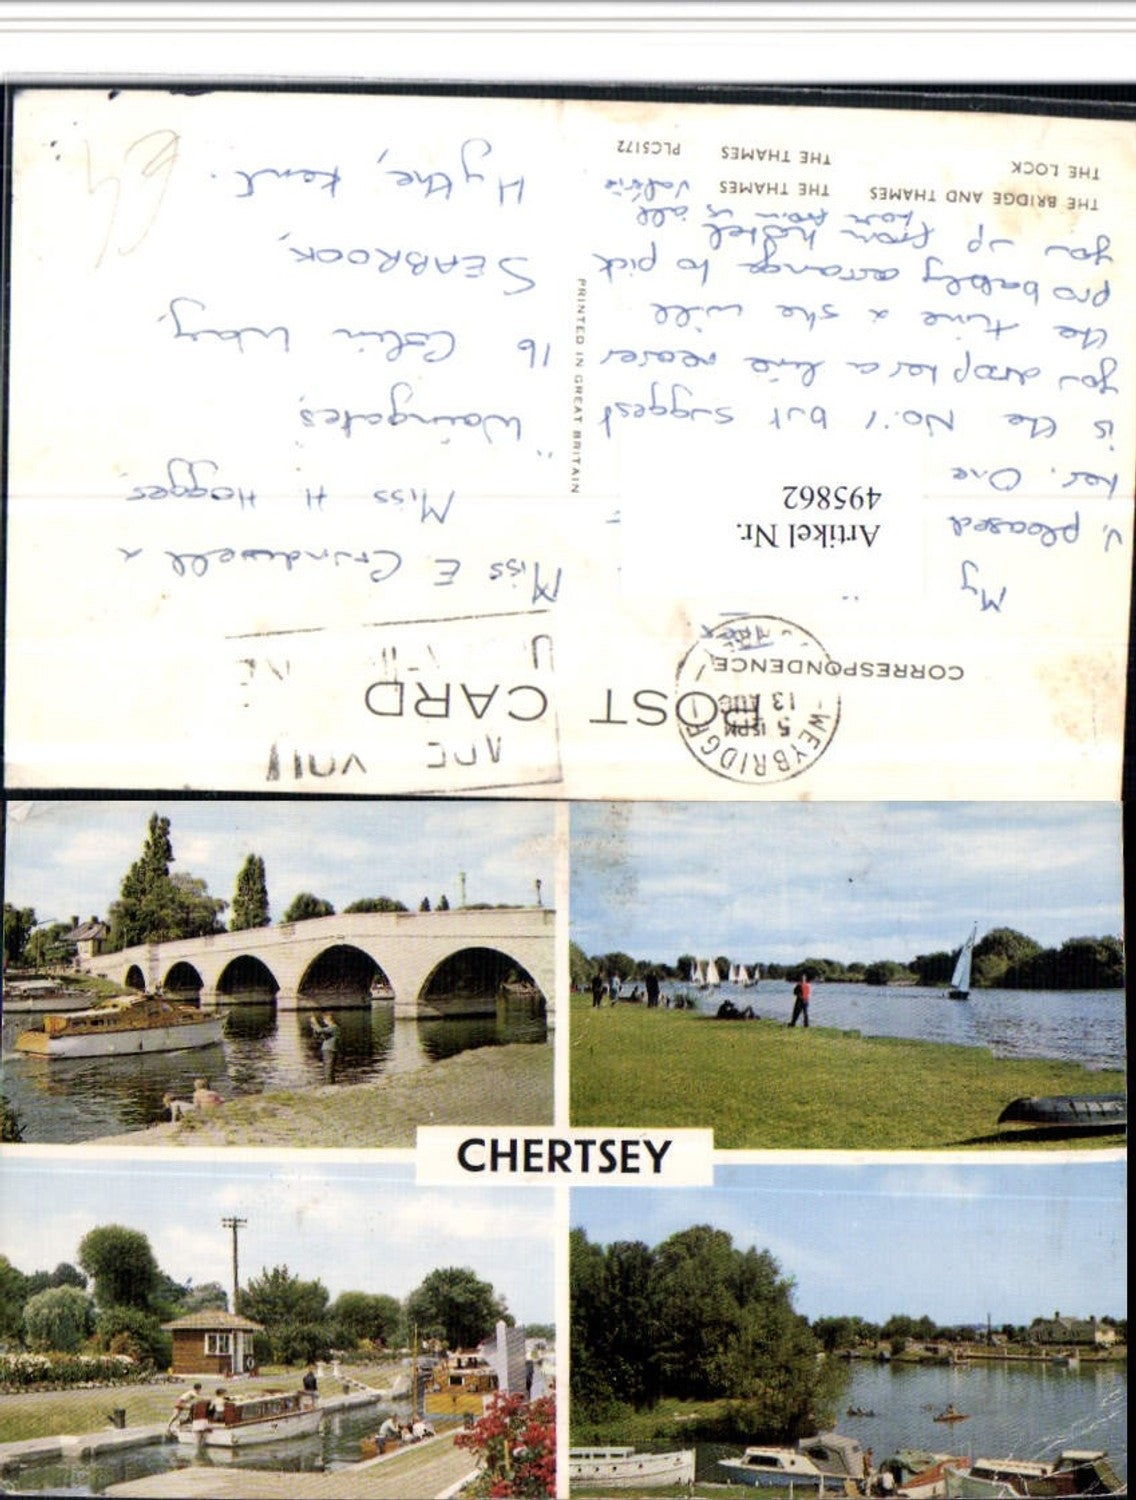 THE BRIDGE AND THAMES THE THAMES
THE LOCK THE THAMES PLC5172
POST CARD
CORRESPONDENCE
WEYBRIDGE
5 15 PM
13 AUG
My
v. pleased
her. One
is the No. 1 but suggest
you drop her a line nearer
the time & she will
probably arrange to pick
you up from hotel
from us all
Valérie
Artikel Nr.
495862
PRINTED IN GREAT BRITAIN
Miss E. Grindwell &
Miss H. Hogges
"Waingates,
16 Colin Way,
SEABROOK,
Hythe, Kent.
CHERTSEY